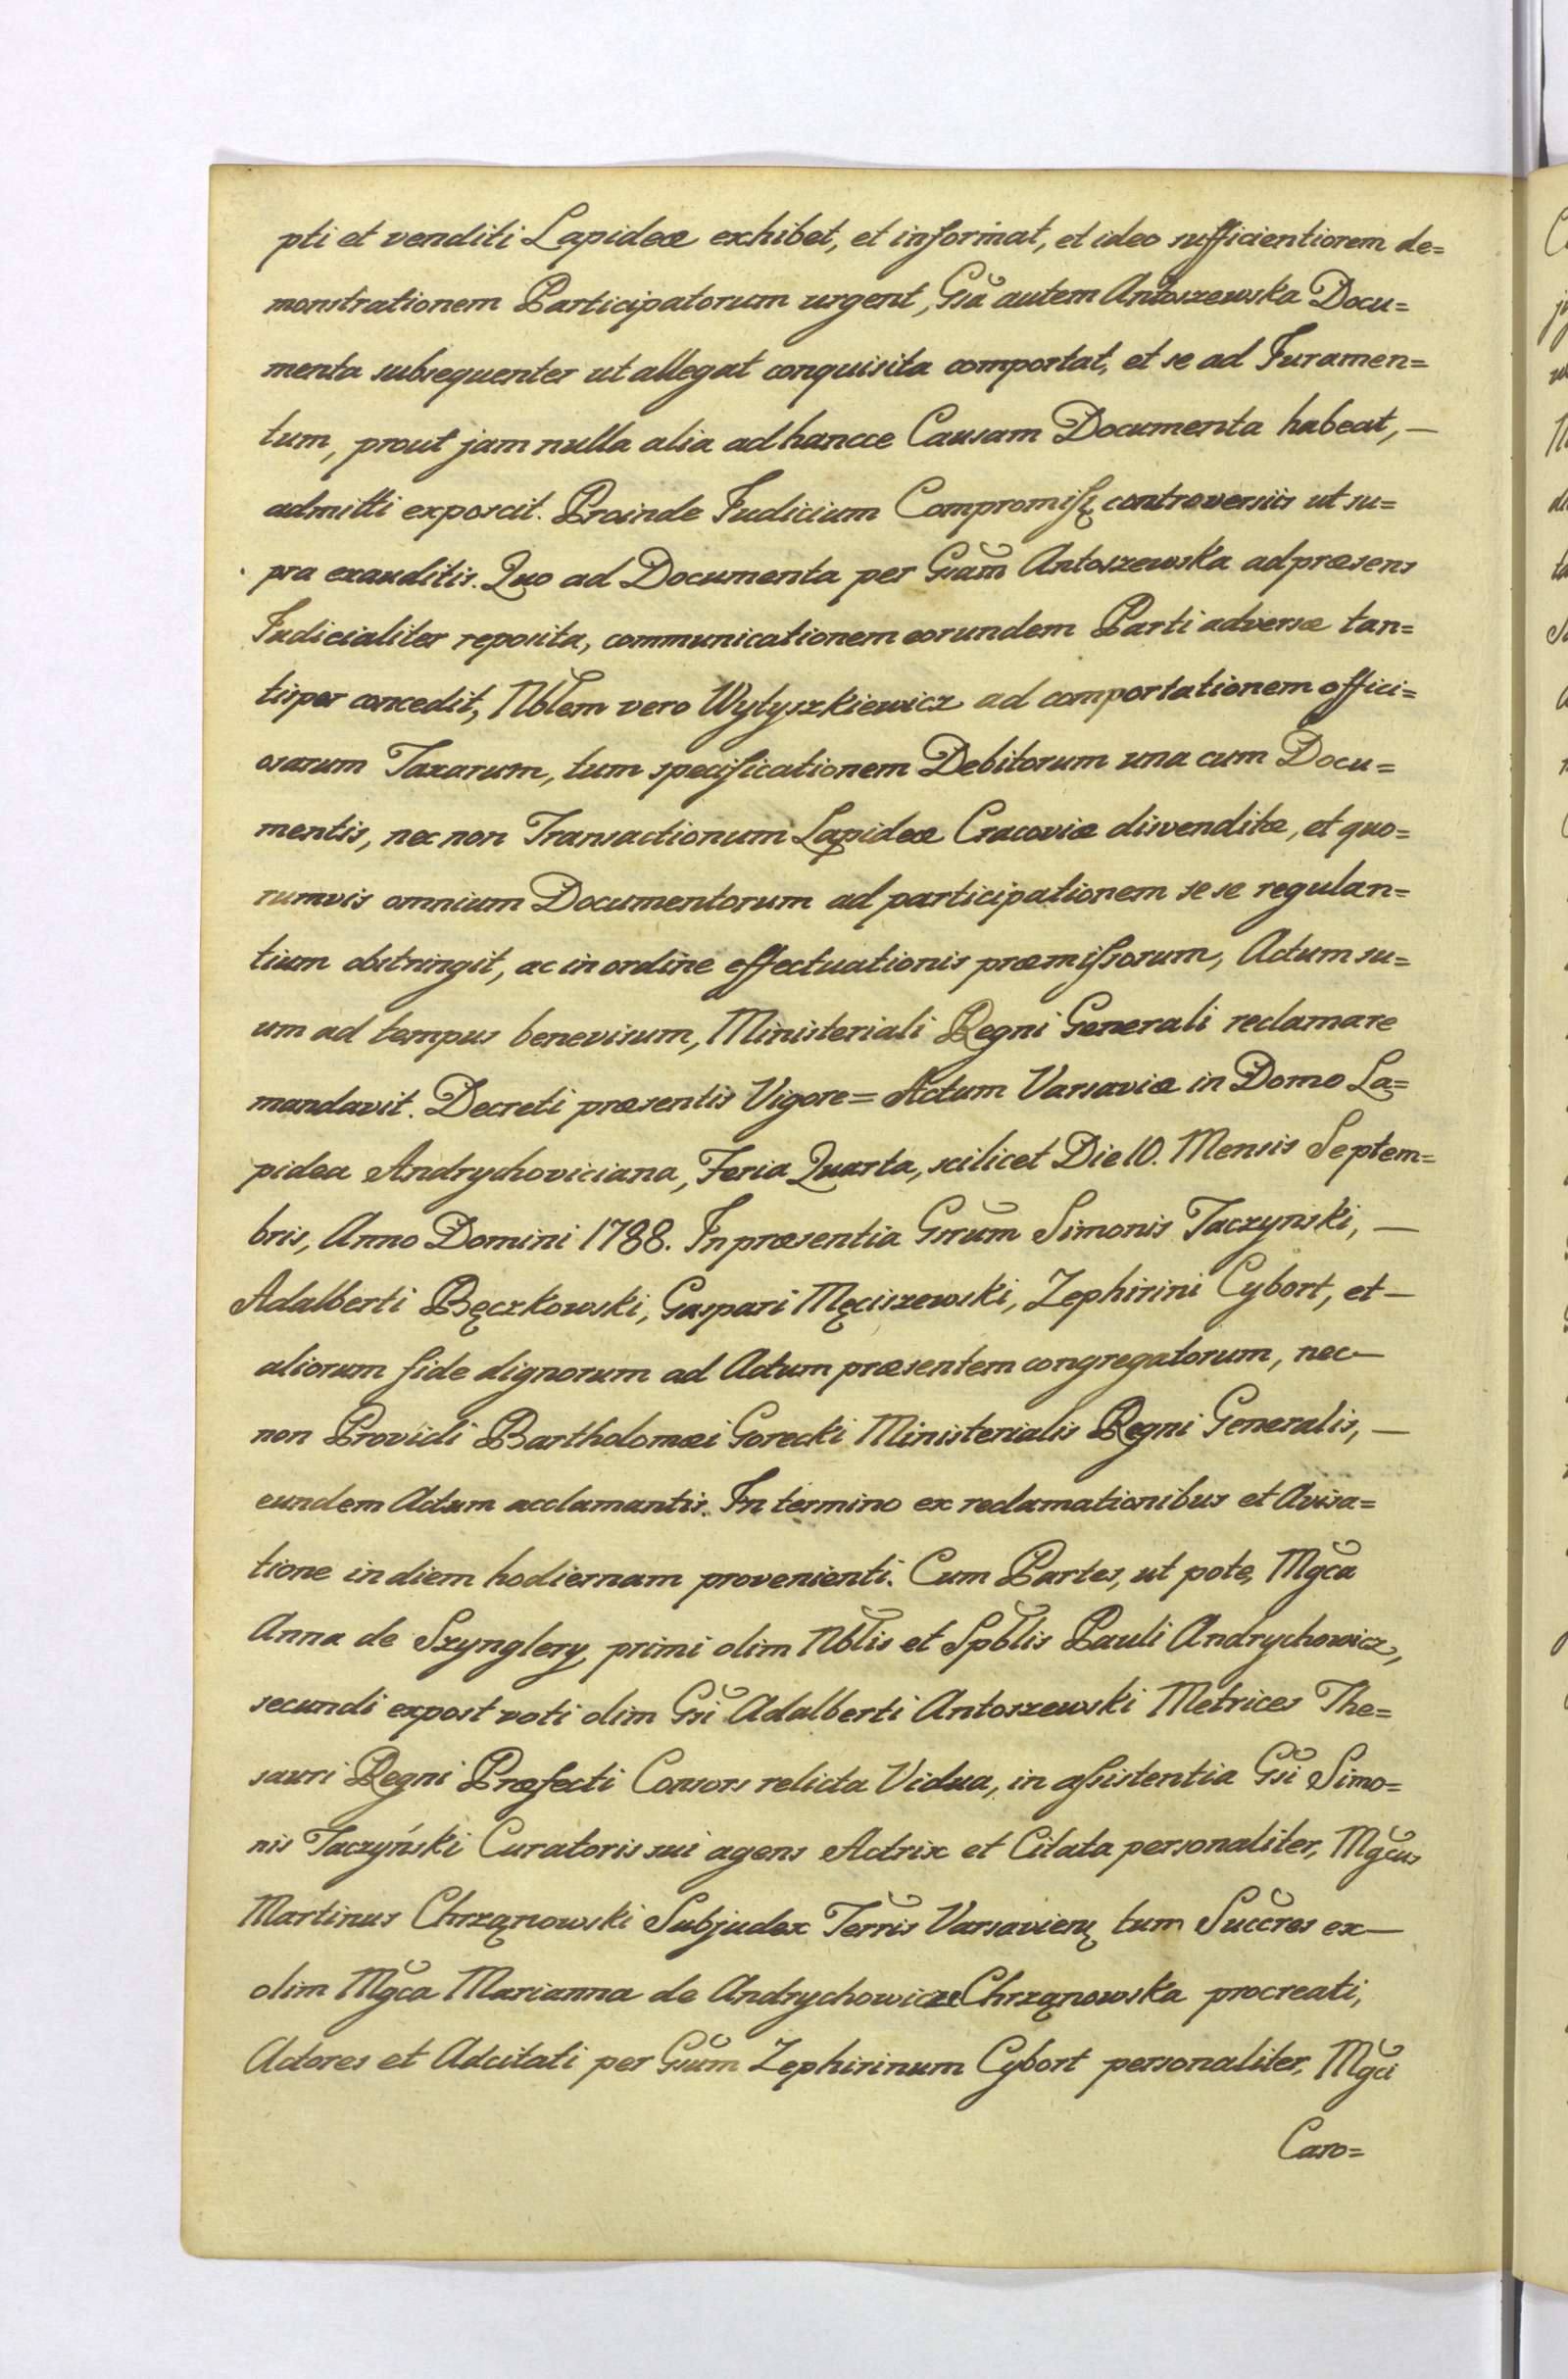 pti et venditi Lapideæ exhibet, et informat, et ideo sufficientiorem de=
monstrationem Participatorum urgent, Gsa autem Antoszewska Docu=
menta subsequenter ut allegat conquisita comportat, et se ad Juramen=
tum, prout jam nulla alia ad hancce Causam Documenta habeat, —
admitti exposcit. Proinde Judicium Compromiſs. controversiis ut su=
pra exauditis. Quo ad Documenta per Gsam Antoszewska ad præsens
Judicialiter reposita, communicationem eorundem Parti adversæ tan=
tisper concedit, Nblem vero Wytyszkiewicz ad comportationem offici=
osarum Taxarum, tum specificationem Debitorum una cum Docu=
mentis, nec non Transactionum Lapideæ Cracoviæ disvenditæ, et quo=
rumvis omnium Documentorum ad participationem se se regulan=
tium obstringit, ac in ordine effectuationis præmiſsorum, Actum su=
um ad tempus benevisum, Ministeriali Regni Generali reclamare
mandavit. Decreti præsentis Vigore= Actum Varsaviæ in Domo La=
pidea Andrychoviciana, Feria Quarta, scilicet Die 10. Mensis Septem=
bris, Anno Domini 1788. In præsentia Gsrum Simonis Taczynski, —
Adalberti Bęczkowski, Gaspari Męciszewski, Zephirini Cybort, et —
aliorum fide dignorum ad Actum præsentem congregatorum, nec —
non Providi Bartholomæi Gorecki Ministerialis Regni Generalis, —
eundem Actum acclamantis. In termino ex reclamationibus et Avisa=
tione in diem hodiernam provenienti. Cum Partes, ut pote, Mgca
Anna de Szynglery, primi olim Nblis et Spblis Pauli Andrychowicz,
secundi expost voti olim Gsi Adalberti Antoszewski Metrices The=
sauri Regni Præfecti Consors relicta Vidua, in aſsistentia Gsi Simo=
nis Taczyński Curatoris sui agens Actrix et Citata personaliter, Mgcus
Martinus Chrząnowski Subjudex Terris Varsavien. tum Succres ex —
olim Mgca Marianna de Andrychowicze Chrząnowska procreati,
Actores et Adcitati per Gsum Zephirinum Cybort personaliter, Mgci
Caro=